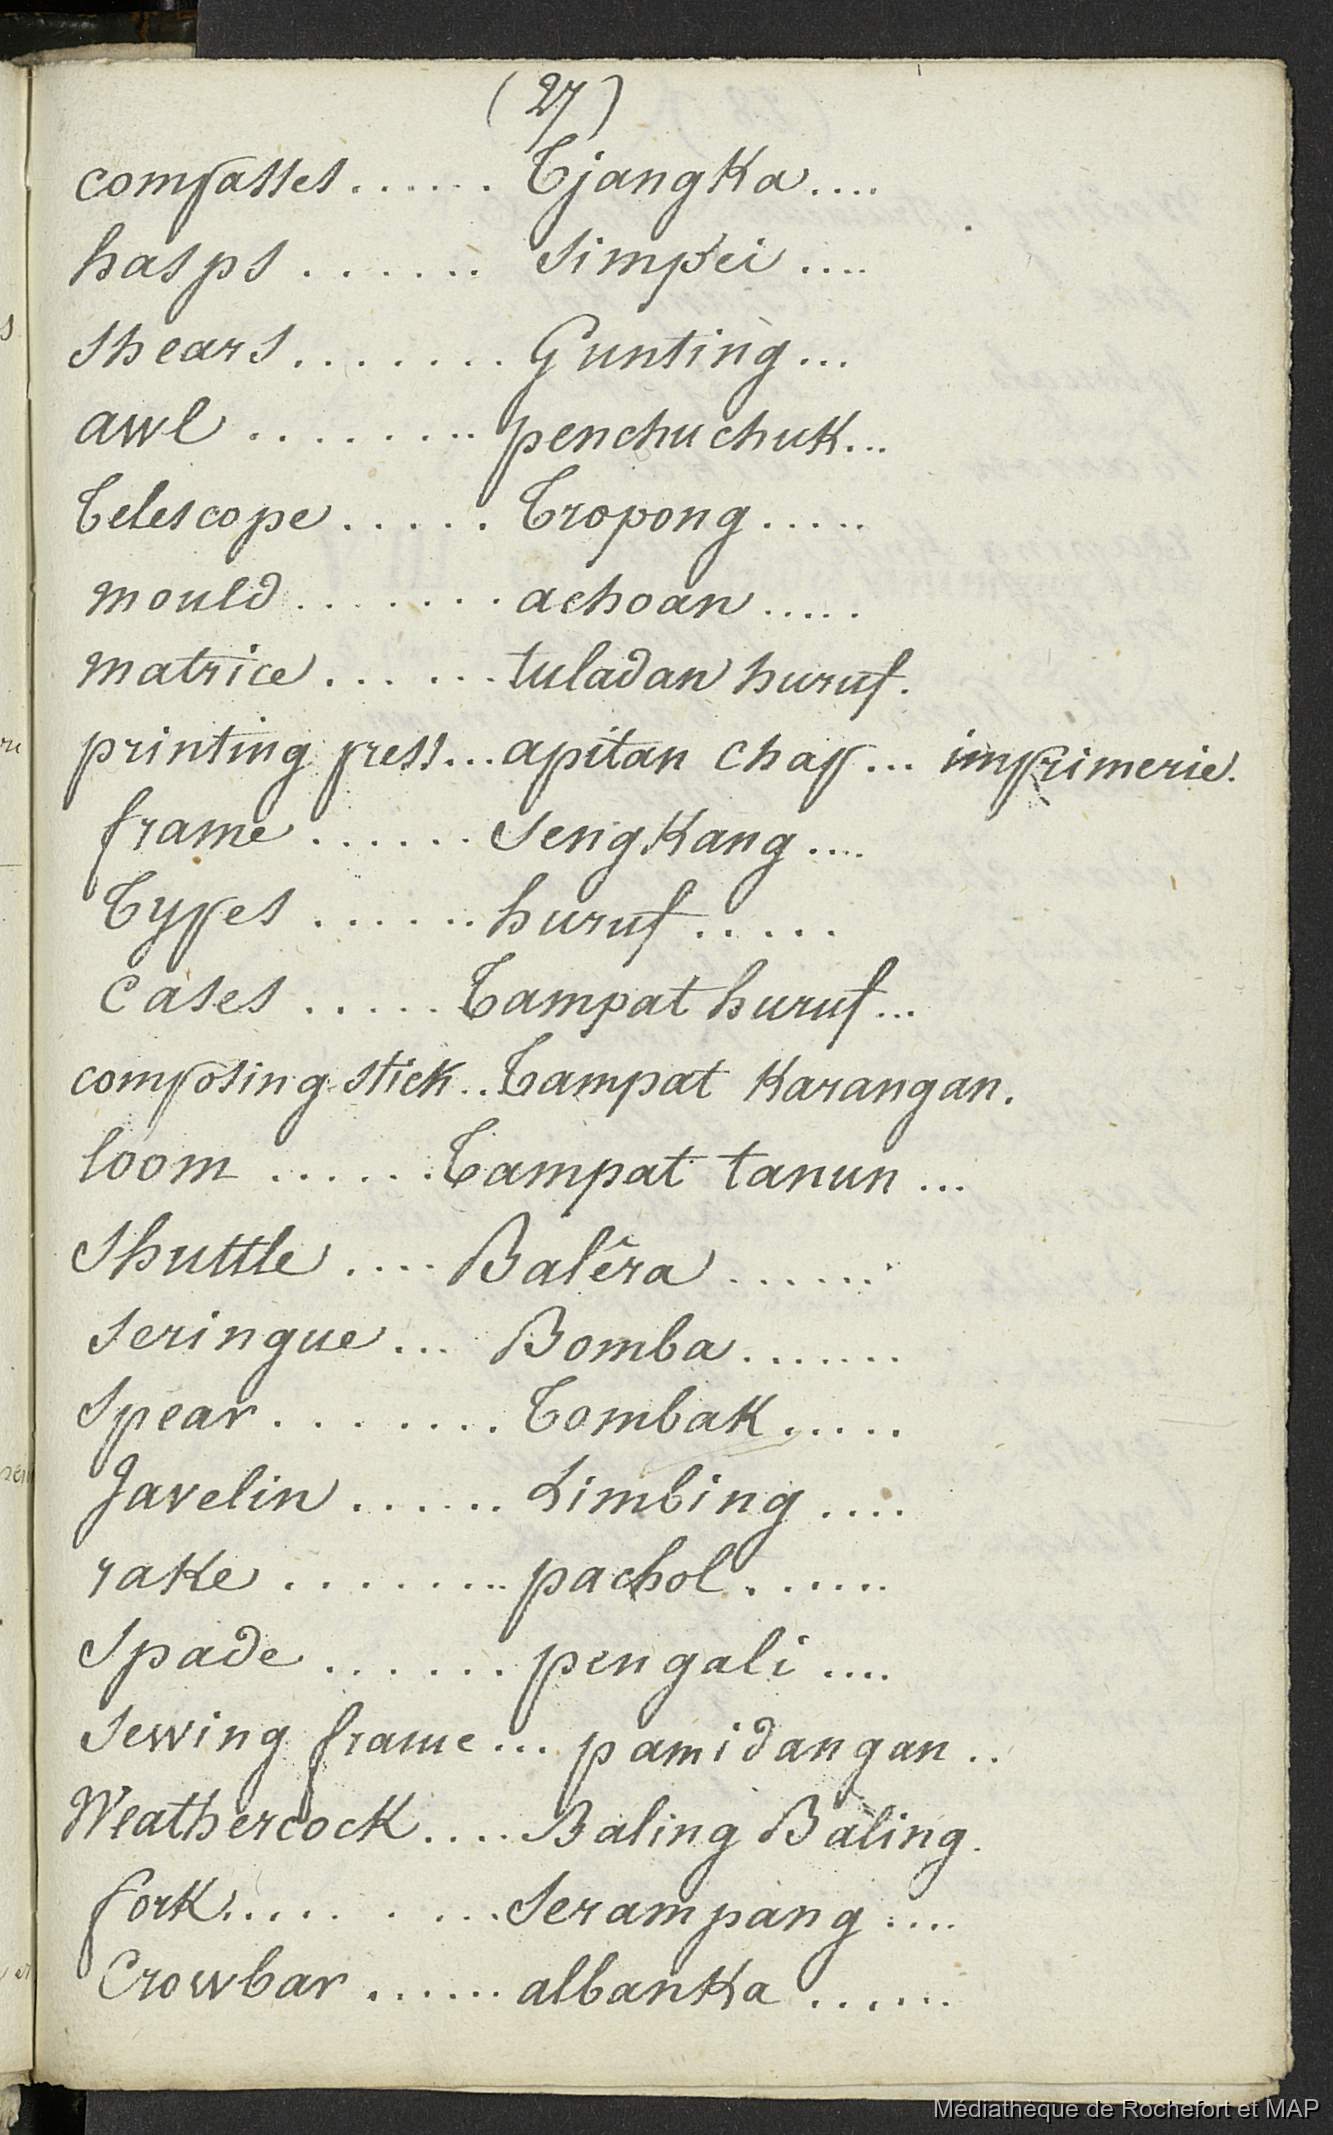 (27)
compasses...... Tjangka....
hasps....... simpei....
shears....... Gunting...
awl........ penchuchuk...
Telescope...... Tropong.....
mould....... achoan.....
matrice...... tuladan huruf.
printing press... apitan chap... imprimerie.
frame...... sengkang....
Types...... huruf.....
cases..... Tampat huruf...
composing stick.. Tampat karangan.
loom...... Tampat tanun...
Shuttle.... Balêra.......
seringue... Bomba.......
spear....... Tombak.....
Javelin...... Limbing....
rake........ pachol.......
Spade...... pengali....
sewing frame... pamidangan..
Weathercock.... Baling Baling.
fork........ serampang....
Crowbar...... albanka......
Médiathèque de Rochefort et MAP